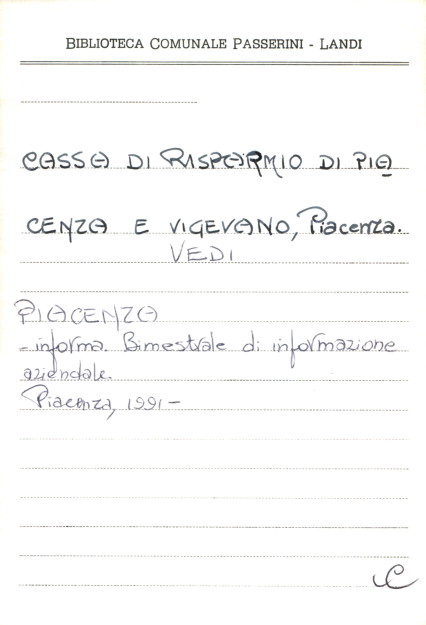 BIBLIOTECA COMUNALE PASSERINI - LANDI
CASSA DI RISPARMIO DI PIA
CENZA E VIGEVANO, Piacenza.
VEDI
PIACENZA
- informa. Bimestrale di informazione
aziendale.
Piacenza, 1991 -